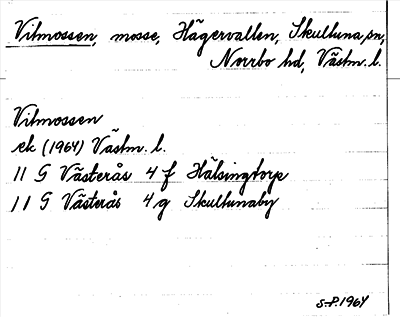 Vitmossen, mosse, Hägervallen, Skultuna sn,
Norrbo hd, Västm. l.
Vitmossen
ek (1964) Västm. l.
11 G Västerås 4 f Hälsingtorp
11 G Västerås 4 g Skultunaby
S-P. 1964